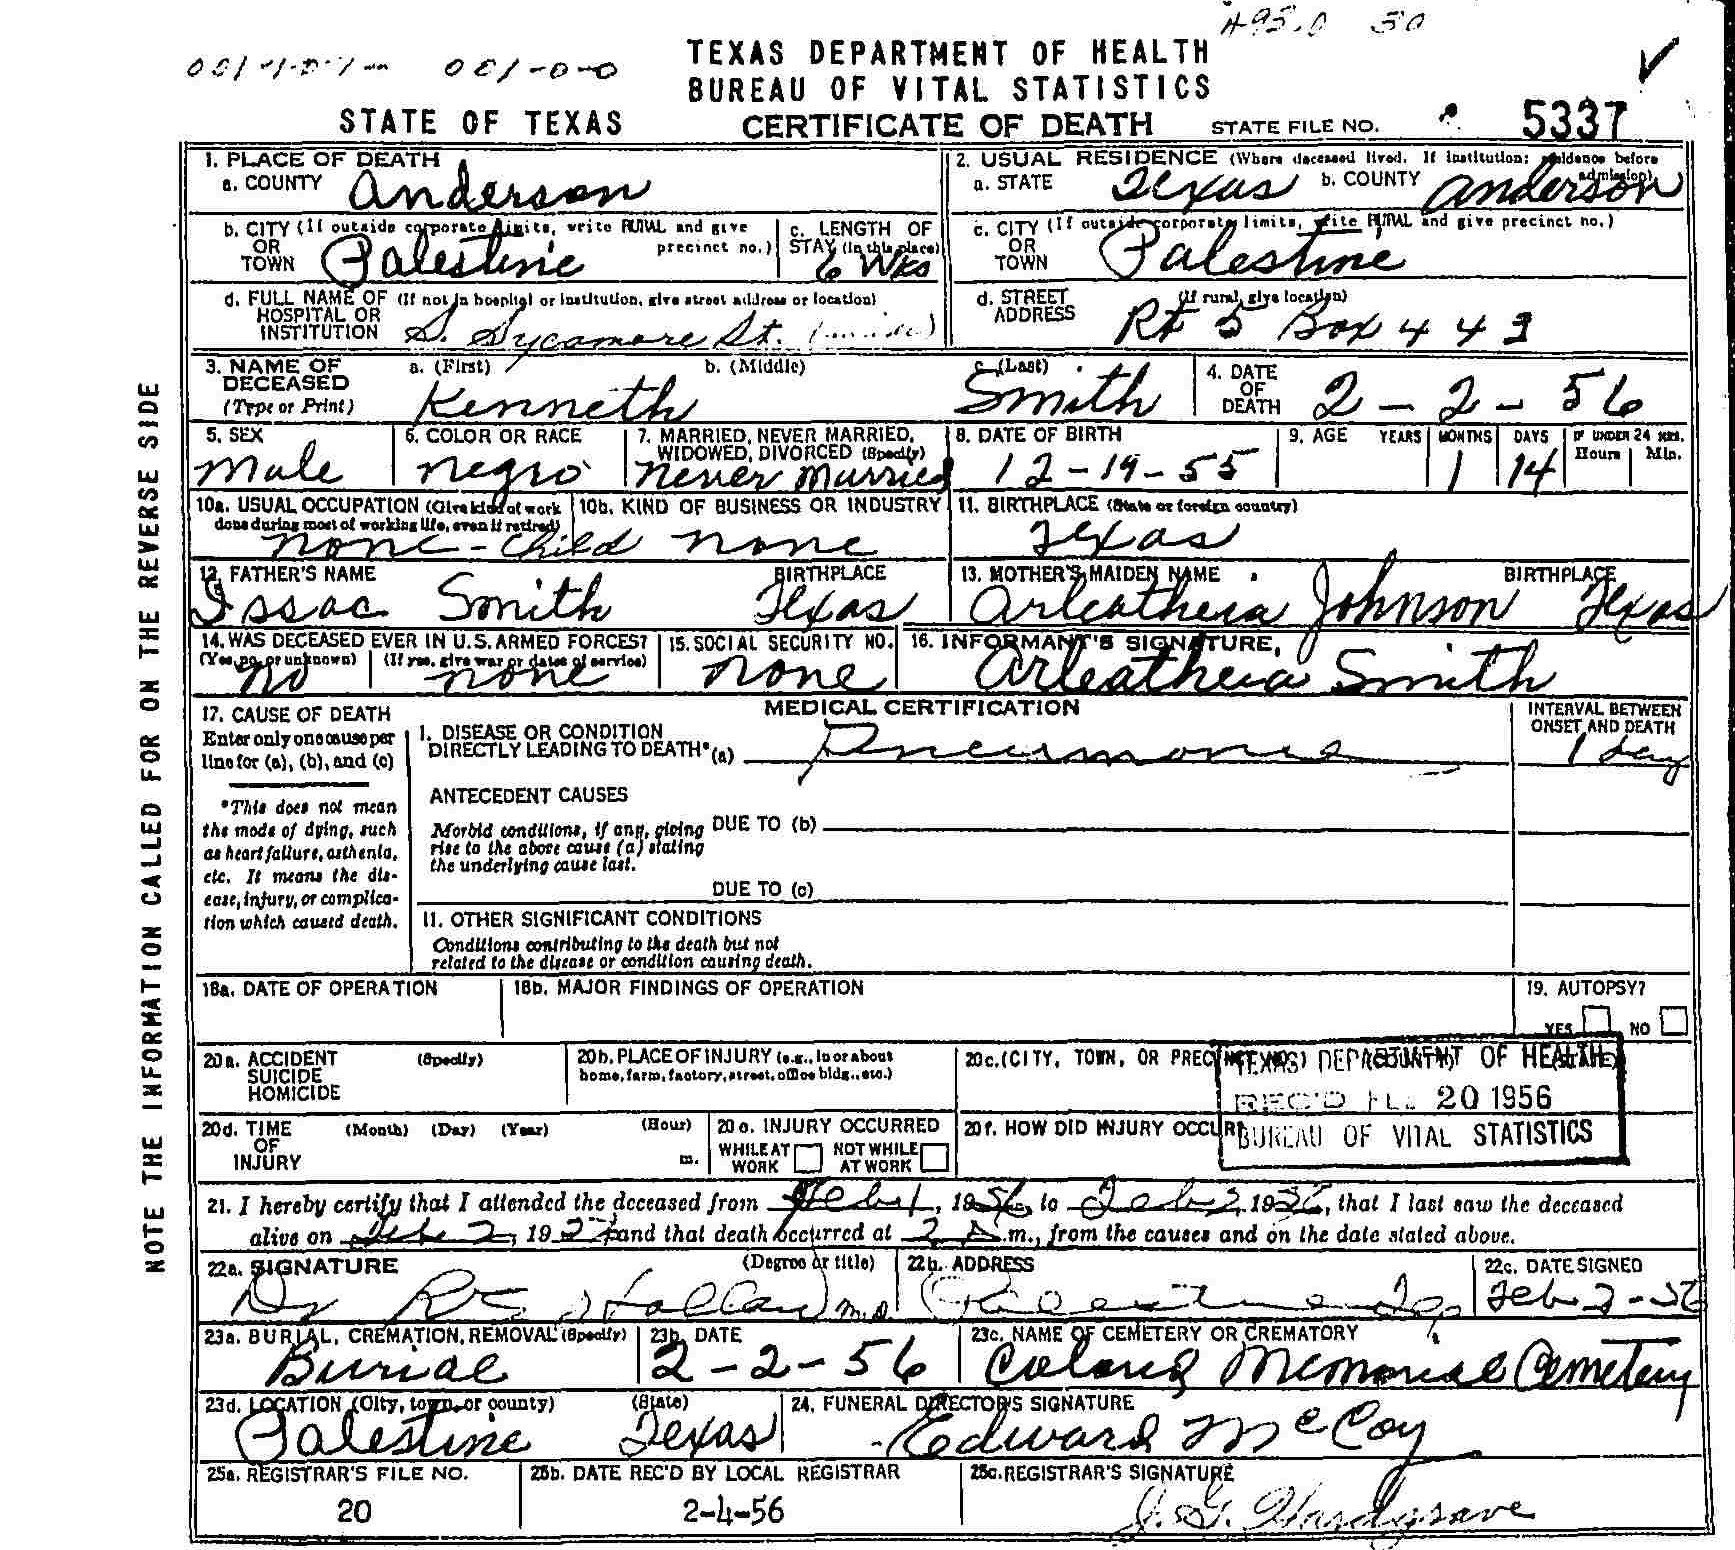 TEXAS DEPARTMENT OF HEALTH
BUREAU OF VITAL STATISTICS
STATE OF TEXAS CERTIFICATE OF DEATH STATE FILE NO. 5337
1. PLACE OF DEATH
a. COUNTY Anderson
2. USUAL RESIDENCE (Where deceased lived. If institution: residence before admission)
a. STATE Texas b. COUNTY Anderson
b. CITY (If outside corporate limits, write RURAL and give precinct no.)
OR TOWN Palestine
c. LENGTH OF STAY (In this place) 6 Wks
c. CITY (If outside corporate limits, write RURAL and give precinct no.)
OR TOWN Palestine
d. FULL NAME OF HOSPITAL OR INSTITUTION (If not in hospital or institution, give street address or location)
S. Sycamore St.
d. STREET ADDRESS (If rural, give location)
Rt 5 Box 443
3. NAME OF DECEASED (Type or Print)
a. (First) Kenneth b. (Middle) c. (Last) Smith
4. DATE OF DEATH 2-2-56
5. SEX Male
6. COLOR OR RACE Negro
7. MARRIED, NEVER MARRIED, WIDOWED, DIVORCED (Specify) Never Married
8. DATE OF BIRTH 12-19-55
9. AGE YEARS MONTHS 1 DAYS 14 IF UNDER 24 HRS. Hours Min.
10a. USUAL OCCUPATION (Give kind of work done during most of working life, even if retired) none - child
10b. KIND OF BUSINESS OR INDUSTRY none
11. BIRTHPLACE (State or foreign country) Texas
12. FATHER'S NAME Issac Smith BIRTHPLACE Texas
13. MOTHER'S MAIDEN NAME Arleatheia Johnson BIRTHPLACE Texas
14. WAS DECEASED EVER IN U.S. ARMED FORCES?
(Yes, no, or unknown) No (If yes, give war or dates of service) none
15. SOCIAL SECURITY NO. none
16. INFORMANT'S SIGNATURE, Arleatheia Smith
MEDICAL CERTIFICATION
17. CAUSE OF DEATH
Enter only one cause per line for (a), (b), and (c)
*This does not mean the mode of dying, such as heart failure, asthenia, etc. It means the disease, injury, or complication which caused death.
I. DISEASE OR CONDITION DIRECTLY LEADING TO DEATH* (a) Pneumonia
INTERVAL BETWEEN ONSET AND DEATH 1 day
ANTECEDENT CAUSES
Morbid conditions, if any, giving rise to the above cause (a) stating the underlying cause last.
DUE TO (b)
DUE TO (c)
II. OTHER SIGNIFICANT CONDITIONS
Conditions contributing to the death but not related to the disease or condition causing death.
18a. DATE OF OPERATION
18b. MAJOR FINDINGS OF OPERATION
19. AUTOPSY?
YES NO
20a. ACCIDENT SUICIDE HOMICIDE (Specify)
20b. PLACE OF INJURY (e.g., in or about home, farm, factory, street, office bldg., etc.)
20c. (CITY, TOWN, OR PRECINCT NO.) (COUNTY) (STATE)
TEXAS DEPARTMENT OF HEALTH
REC'D FEB 20 1956
BUREAU OF VITAL STATISTICS
20d. TIME OF INJURY (Month) (Day) (Year) (Hour) m.
20e. INJURY OCCURRED
WHILE AT WORK NOT WHILE AT WORK
20f. HOW DID INJURY OCCUR?
21. I hereby certify that I attended the deceased from Feb 1, 1956, to Feb 2, 1956, that I last saw the deceased
alive on Feb 2, 19 and that death occurred at 2 A.m., from the causes and on the date stated above.
22a. SIGNATURE (Degree or title) Dr Holland M.D.
22b. ADDRESS Palestine Tex
22c. DATE SIGNED Feb 2-56
23a. BURIAL, CREMATION, REMOVAL (Specify) Burial
23b. DATE 2-2-56
23c. NAME OF CEMETERY OR CREMATORY Colored Memorial Cemetery
23d. LOCATION (City, town, or county) (State) Palestine Texas
24. FUNERAL DIRECTOR'S SIGNATURE Edward McCoy
25a. REGISTRAR'S FILE NO. 20
25b. DATE REC'D BY LOCAL REGISTRAR 2-4-56
25c. REGISTRAR'S SIGNATURE J. G. Hardgrave
NOTE THE INFORMATION CALLED FOR ON THE REVERSE SIDE